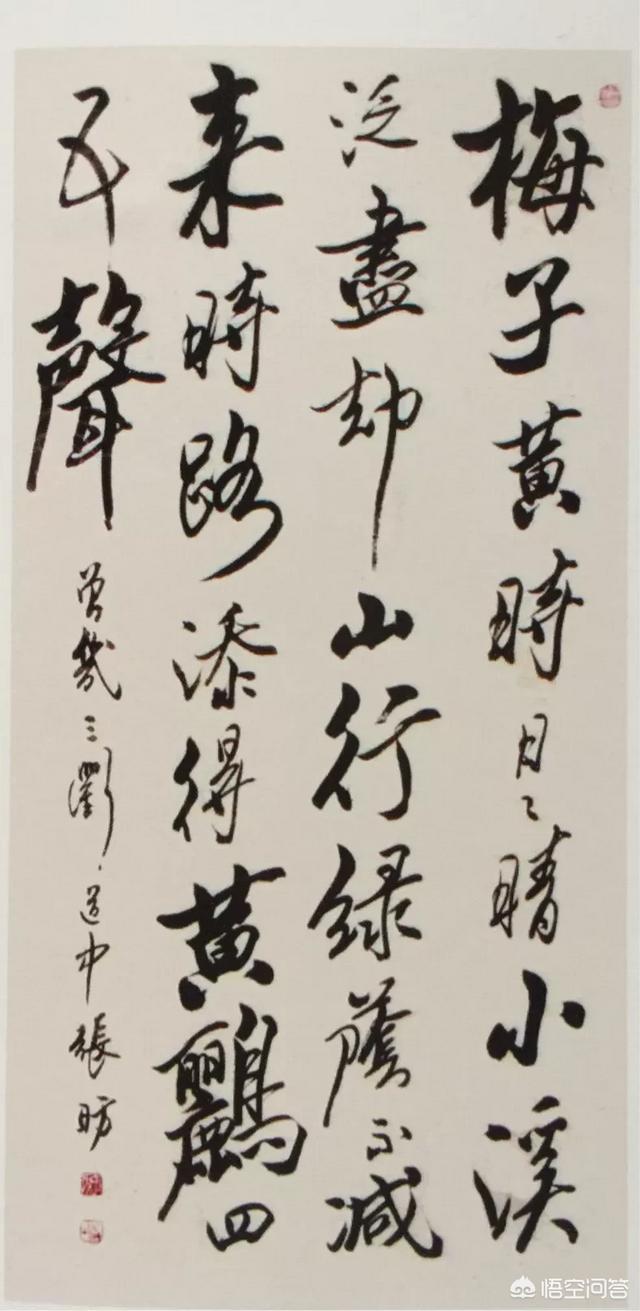 梅子黄時日々晴小溪
泛盡却山行绿蔭不減
来時路添得黄鸝四
五聲
曾幾三衢道中張昉
悟空问答